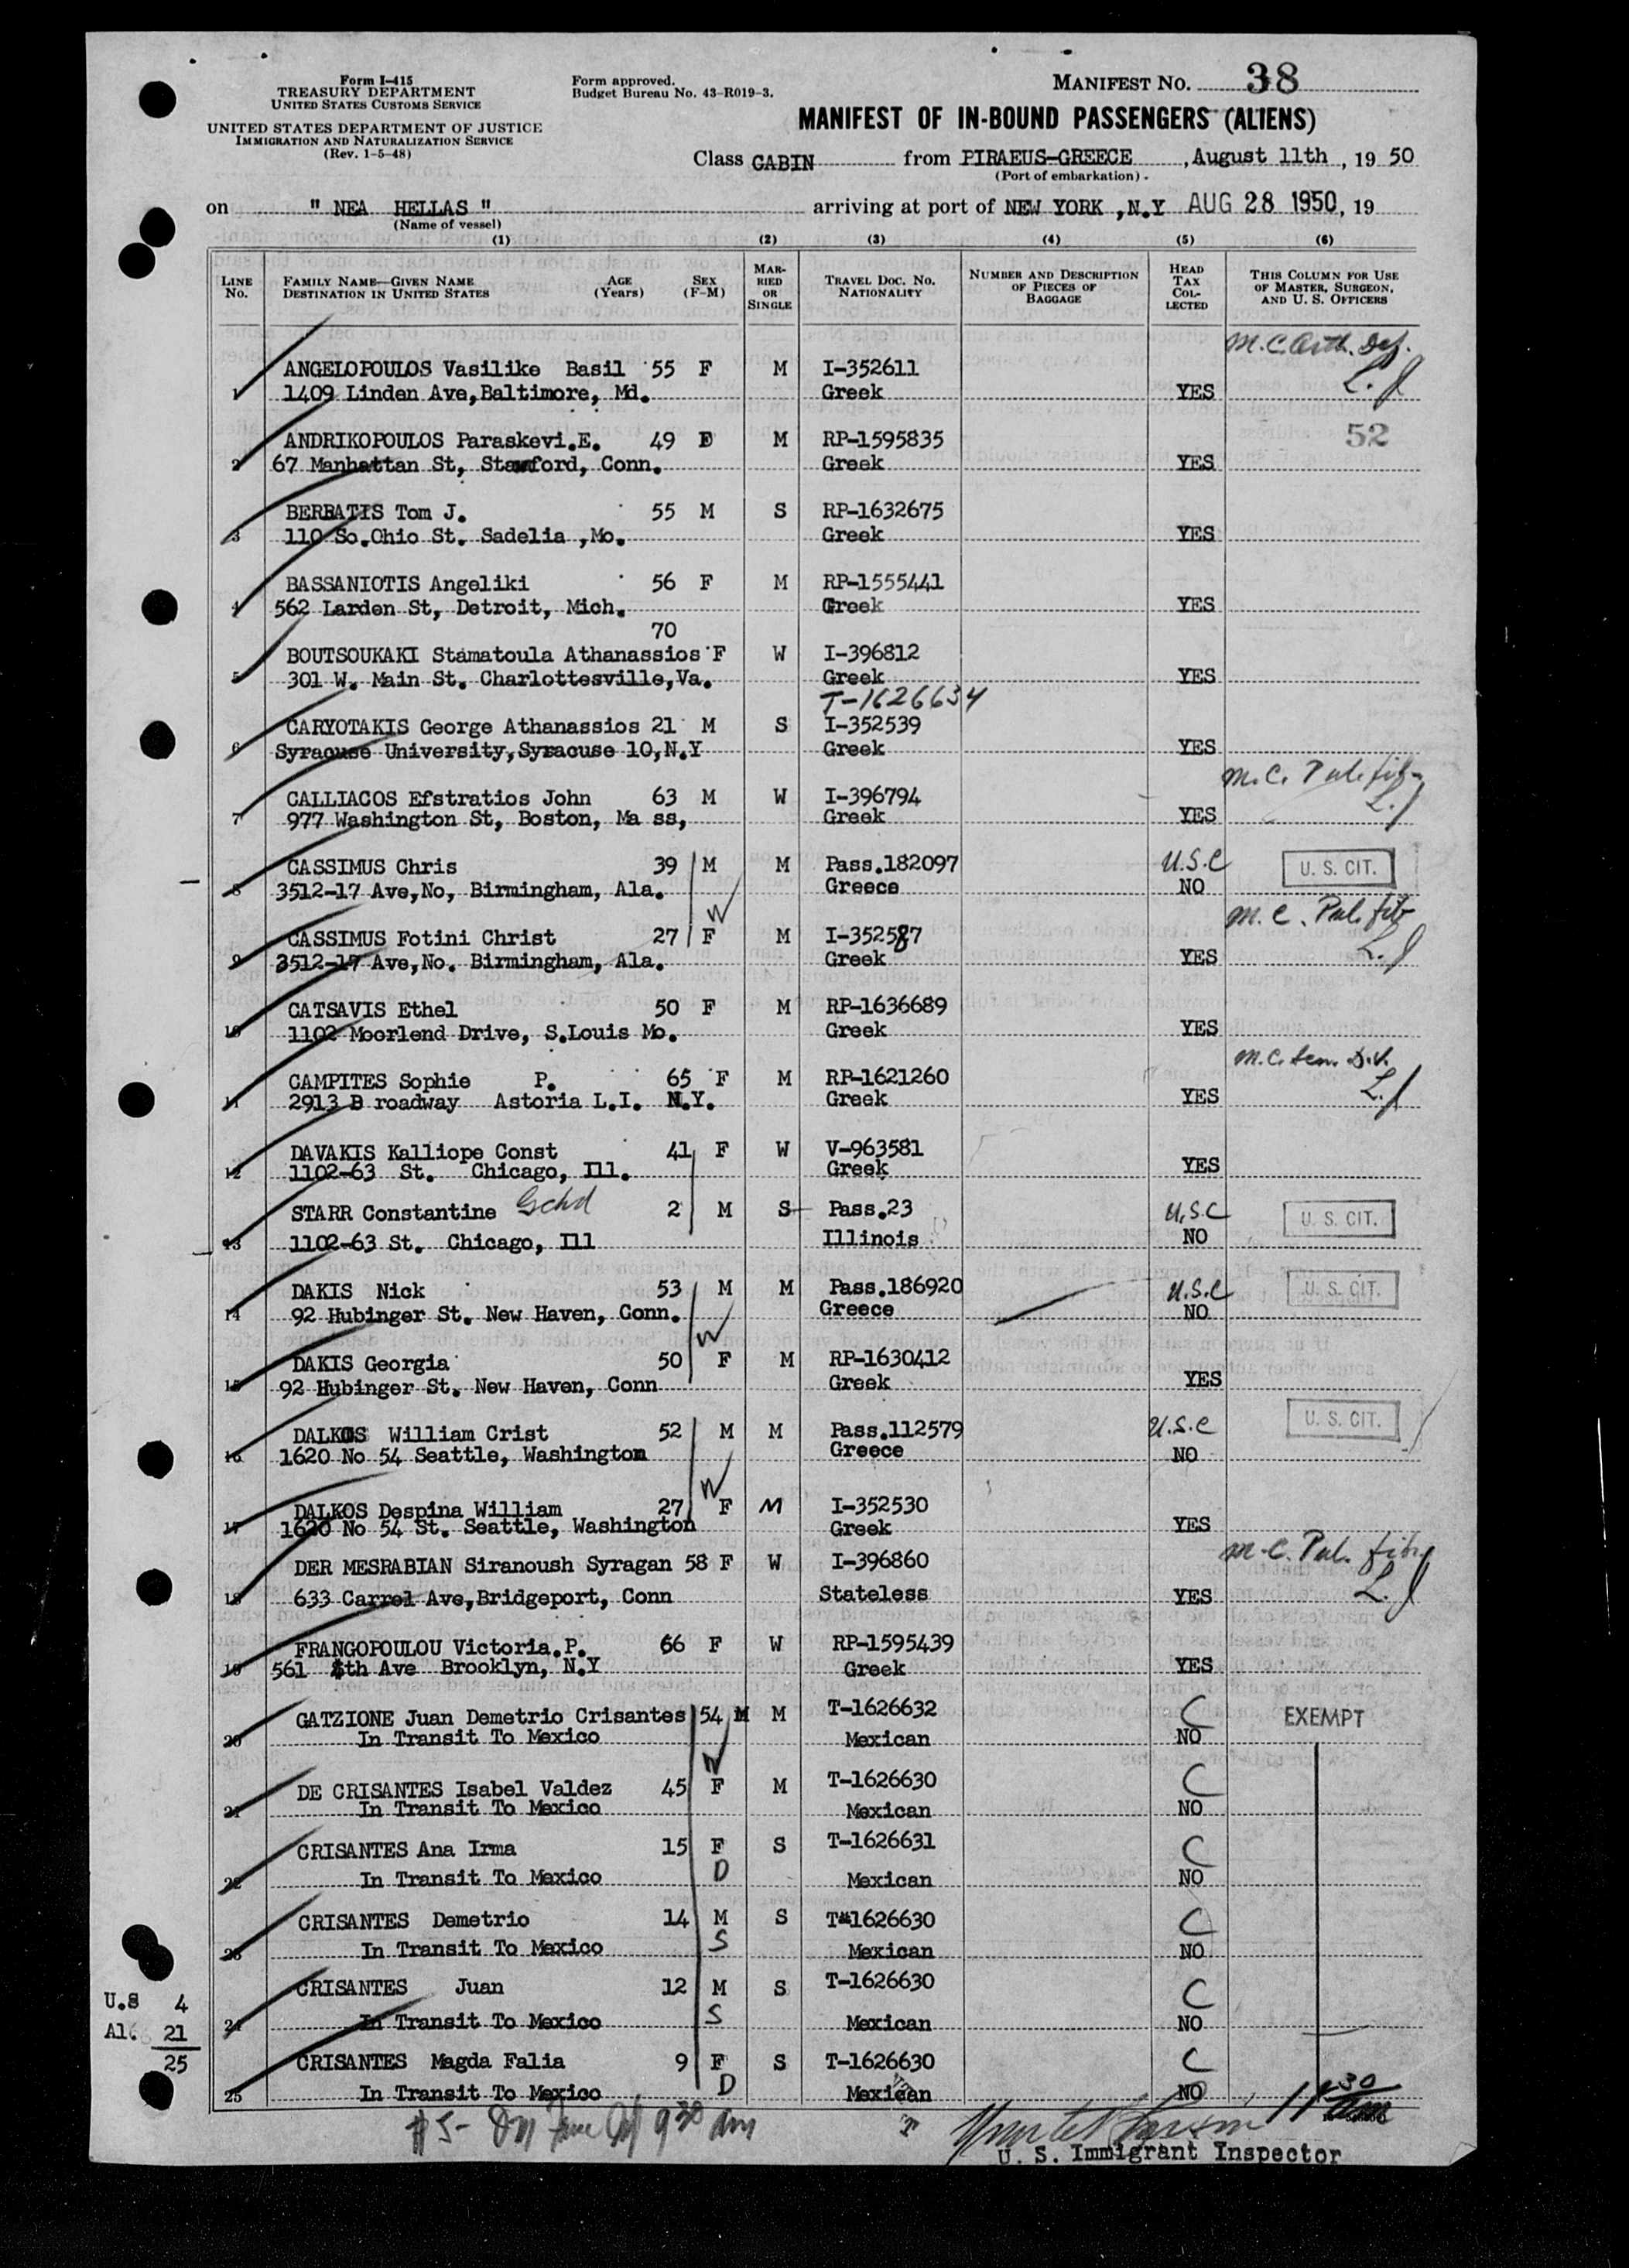 Form I-415
TREASURY DEPARTMENT
UNITED STATES CUSTOMS SERVICE
UNITED STATES DEPARTMENT OF JUSTICE
IMMIGRATION AND NATURALIZATION SERVICE
(Rev. 1-5-48)
Form approved.
Budget Bureau No. 43-R019-3.
MANIFEST NO. 38
MANIFEST OF IN-BOUND PASSENGERS (ALIENS)
Class CABIN from PIRAEUS-GREECE, August 11th, 19 50
(Port of embarkation)
on " NEA HELLAS " arriving at port of NEW YORK ,N.Y AUG 28 1950, 19
(Name of vessel)
(1) (2) (3) (4) (5) (6)
LINE No. FAMILY NAME—GIVEN NAME DESTINATION IN UNITED STATES AGE (Years) SEX (F-M) MARRIED OR SINGLE TRAVEL DOC. NO. NATIONALITY NUMBER AND DESCRIPTION OF PIECES OF BAGGAGE HEAD TAX COLLECTED THIS COLUMN FOR USE OF MASTER, SURGEON, AND U. S. OFFICERS
M.C. Arth. Def.
ANGELOPOULOS Vasilike Basil 55 F M I-352611 L.J
1 1409 Linden Ave,Baltimore, Md. Greek YES
ANDRIKOPOULOS Paraskevi.E. 49 F M RP-1595835 52
2 67 Manhattan St, Stamford, Conn. Greek YES
BERBATIS Tom J. 55 M S RP-1632675
3 110 So.Ohio St. Sadelia ,Mo. Greek YES
BASSANIOTIS Angeliki 56 F M RP-1555441
4 562 Larden St, Detroit, Mich. Greek YES
70
BOUTSOUKAKI Stamatoula Athanassios F W I-396812
5 301 W. Main St. Charlottesville,Va. Greek YES
T-1626634
CARYOTAKIS George Athanassios 21 M S I-352539
6 Syracuse University,Syracuse 10,N.Y Greek YES
M.C.
CALLIACOS Efstratios John 63 M W I-396794 L.J
7 977 Washington St, Boston, Ma ss, Greek YES
CASSIMUS Chris 39 M M Pass.182097 U.S.C U. S. CIT.
8 3512-17 Ave,No, Birmingham, Ala. Greece NO
W M.C. Pul. fib
CASSIMUS Fotini Christ 27 F M I-352587 L.J
9 3512-17 Ave,No. Birmingham, Ala. Greek YES
CATSAVIS Ethel 50 F M RP-1636689
10 1102 Moorlend Drive, S.Louis Mo. Greek YES
M.C. Sen.
CAMPITES Sophie P. 65 F M RP-1621260 L.J
11 2913 B roadway Astoria L.I. N.Y. Greek YES
DAVAKIS Kalliope Const 41 F W V-963581
12 1102-63 St. Chicago, Ill. Greek YES
STARR Constantine Gchd 2 M S Pass.23 U.S.C U. S. CIT.
13 1102-63 St. Chicago, Ill Illinois NO
DAKIS Nick 53 M M Pass.186920 U.S.C U. S. CIT.
14 92 Hubinger St. New Haven, Conn. Greece NO
W
DAKIS Georgia 50 F M RP-1630412
15 92 Hubinger St. New Haven, Conn Greek YES
DALKOS William Crist 52 M M Pass.112579 U.S.C U. S. CIT.
16 1620 No 54 Seattle, Washington Greece NO
W
DALKOS Despina William 27 F M I-352530
17 1620 No 54 St. Seattle, Washington Greek YES
M.C. Pul.
DER MESRABIAN Siranoush Syragan 58 F W I-396860 L.J
18 633 Carrel Ave,Bridgeport, Conn Stateless YES
FRANGOPOULOU Victoria.P. 66 F W RP-1595439
19 561 th Ave Brooklyn, N.Y Greek YES
GATZIONE Juan Demetrio Crisantes 54 M M T-1626632 C EXEMPT
20 In Transit To Mexico Mexican NO
W
DE CRISANTES Isabel Valdez 45 F M T-1626630 C
21 In Transit To Mexico Mexican NO
CRISANTES Ana Irma 15 F S T-1626631 C
22 In Transit To Mexico D Mexican NO
CRISANTES Demetrio 14 M S T-1626630 C
23 In Transit To Mexico S Mexican NO
CRISANTES Juan 12 M S T-1626630 C
24 In Transit To Mexico S Mexican NO
CRISANTES Magda Falia 9 F S T-1626630 C
25 In Transit To Mexico D Mexican NO
U.S 4
Al. 21
25
# 5- 9 30 am
11 30 am
U. S. Immigrant Inspector